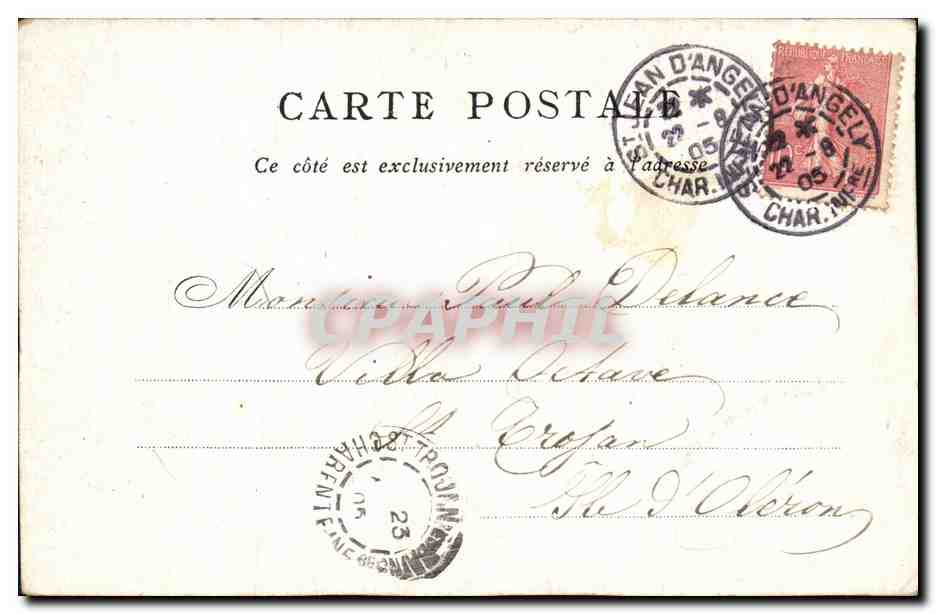 CARTE POSTALE
Ce côté est exclusivement réservé à l'adresse
RÉPUBLIQUE FRANÇAISE
ST JEAN D'ANGELY
22 - 8
05
CHAR. INFRE
ST JEAN D'ANGELY
22 - 8
05
CHAR. INFRE
Monsieur Paul Delance
CPAPHIL
Villa Octave
St Trojan
Ile d'Oléron
ST TROJAN
23
05